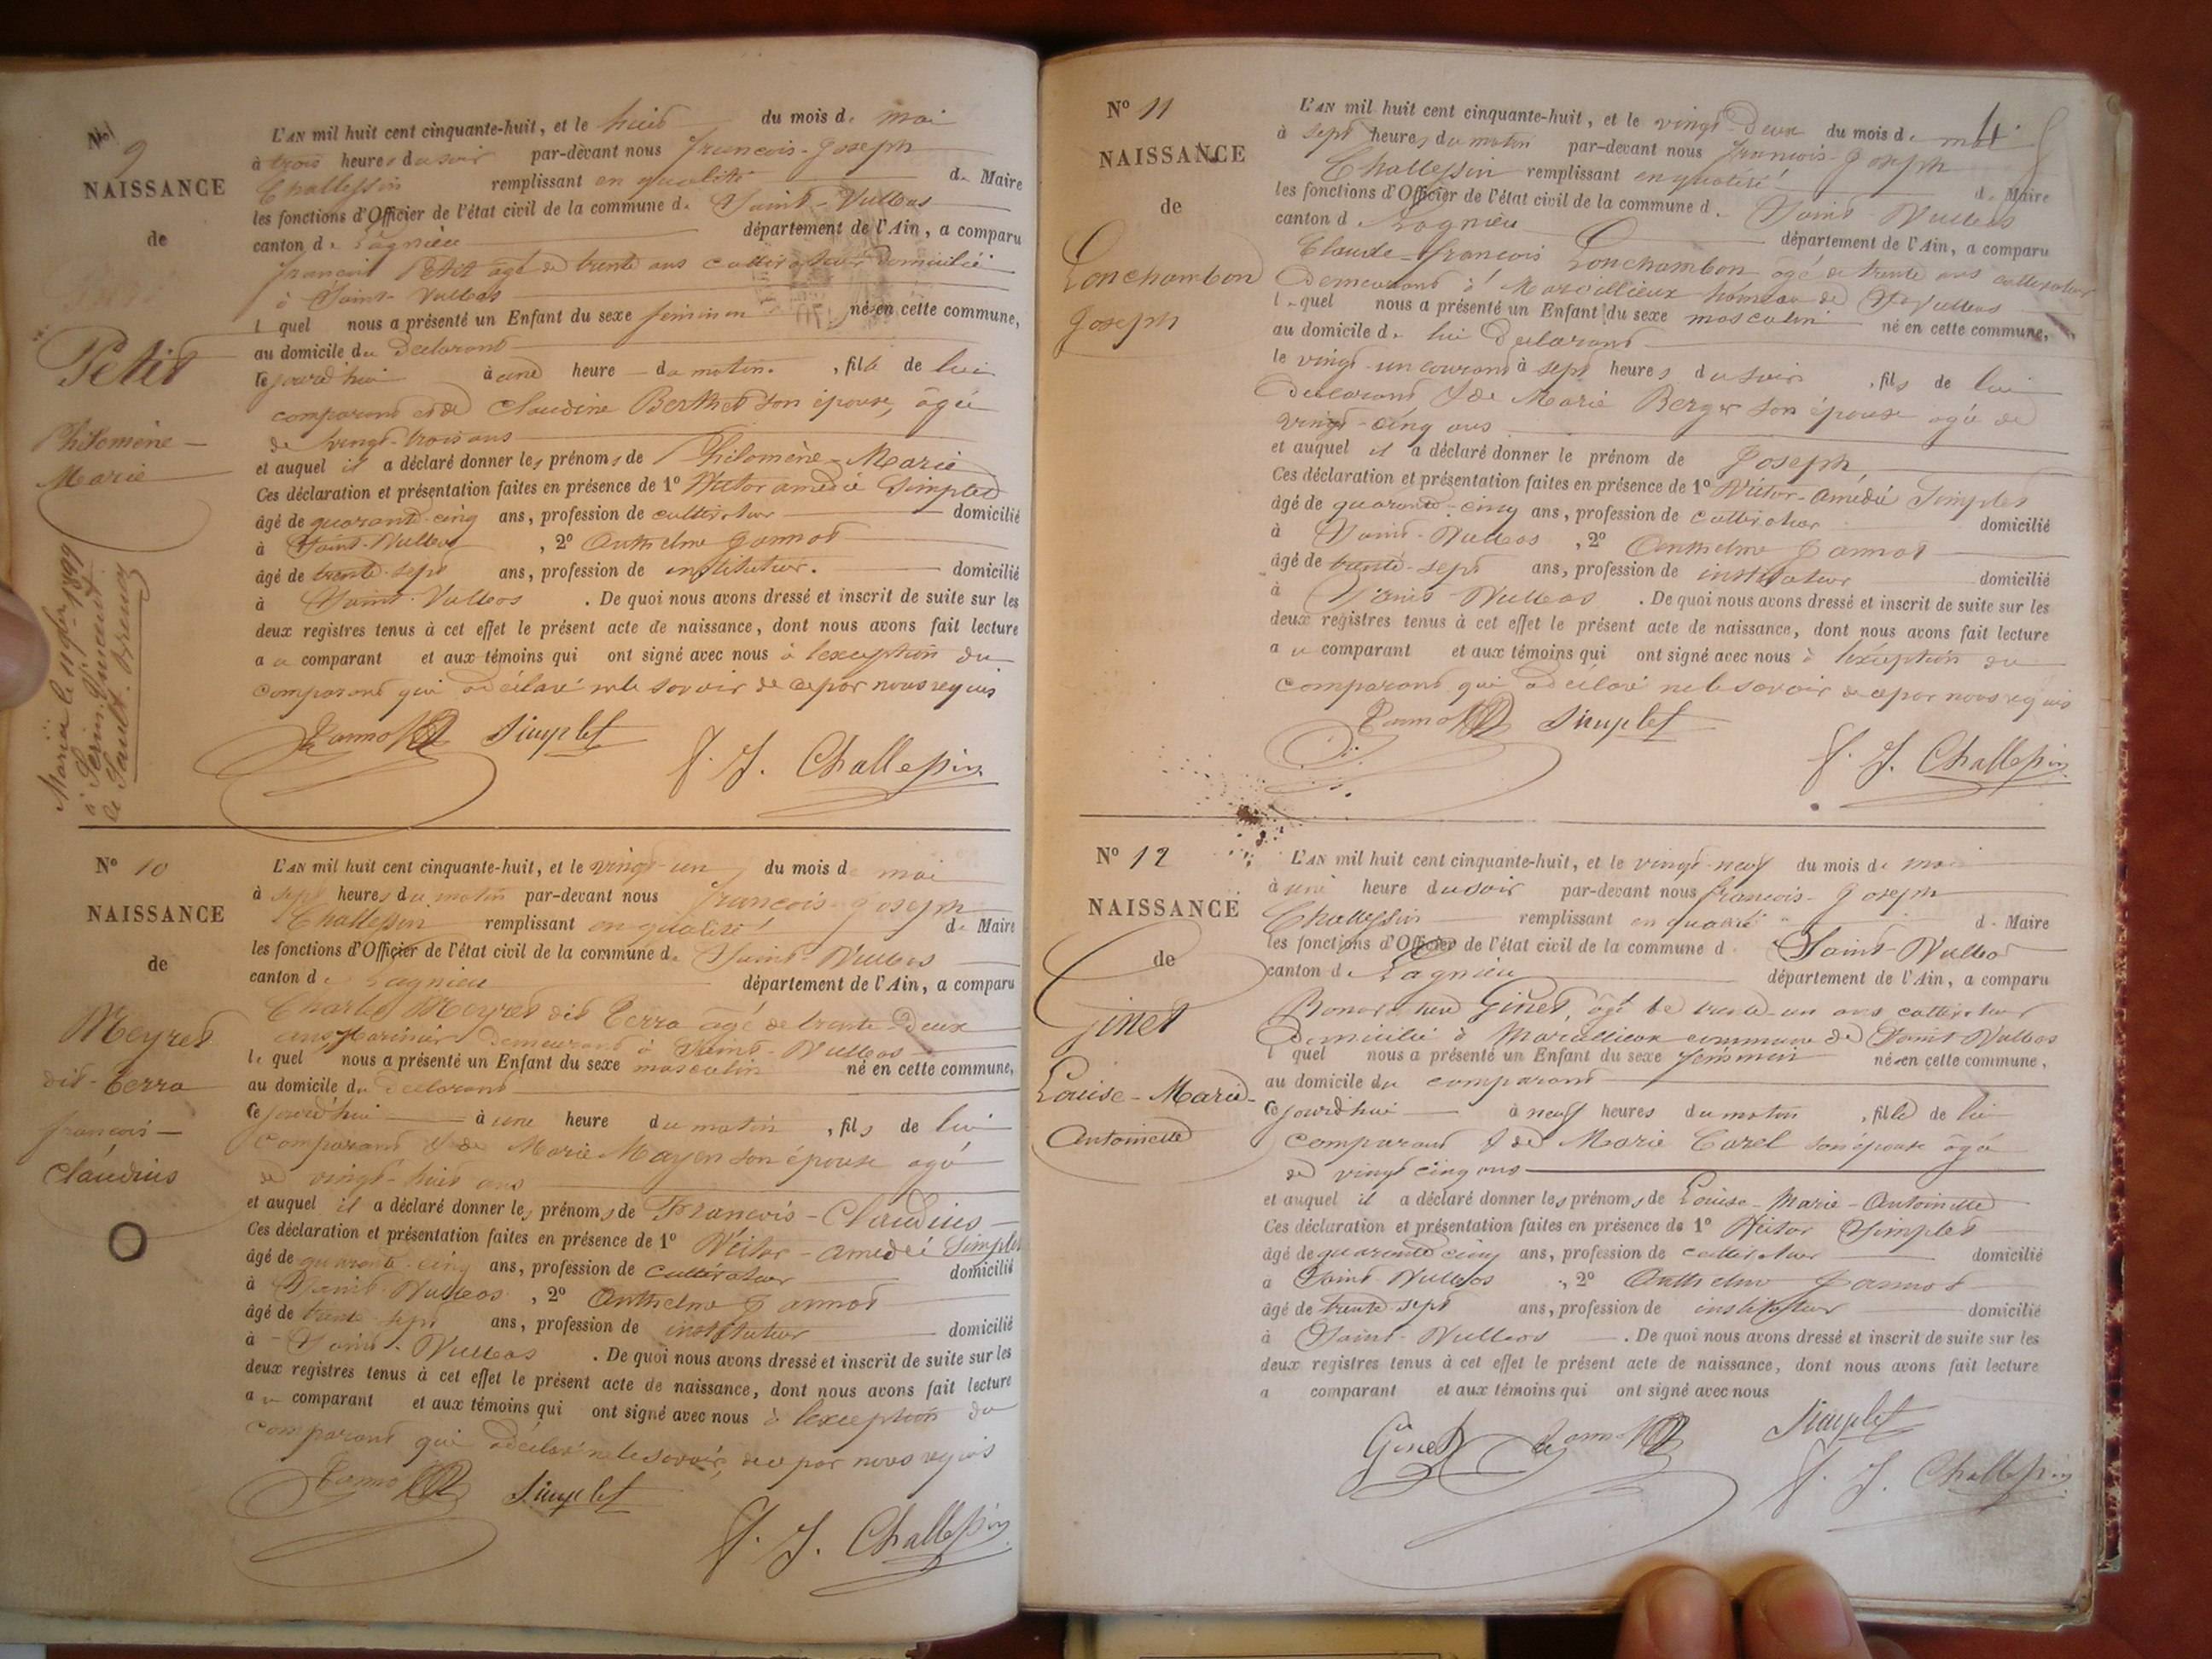 N° 9
NAISSANCE
de
Petit
Philomène
Marie
Marié le 11 9bre 1899
à Serin Vincent
de Sault-Brenaz
L'AN mil huit cent cinquante-huit, et le huit du mois de mai
à trois heures du soir par-devant nous François-Joseph
Challessin remplissant en qualité de Maire
les fonctions d'Officier de l'état civil de la commune de Saint-Vulbas
canton de Lagnieu département de l'Ain, a comparu
François Petit âgé de trente ans cultivateur domicilié
à Saint-Vulbas
lequel nous a présenté un Enfant du sexe féminin né en cette commune,
au domicile du Déclarant
ce jourd'hui à une heure du matin, fille de lui
comparant et de Claudine Berthet son épouse, âgée
de vingt-trois ans
et auquel il a déclaré donner les prénoms de Philomène-Marie
Ces déclaration et présentation faites en présence de 1° Victor amédée Simplet
âgé de quarante-cinq ans, profession de cultivateur domicilié
à Saint-Vulbas, 2° Anthelme Jannot
âgé de trente-sept ans, profession de instituteur. domicilié
à Saint-Vulbas. De quoi nous avons dressé et inscrit de suite sur les
deux registres tenus à cet effet le présent acte de naissance, dont nous avons fait lecture
au comparant et aux témoins qui ont signé avec nous à l'exception du
comparant qui a déclaré ne le savoir de ce par nous requis
Jannot Simplet
F. J. Challessin
N° 10
NAISSANCE
de
Meyret
dit-Terra
françois-
Claudius
L'AN mil huit cent cinquante-huit, et le vingt-un du mois de mai
à sept heures du matin par-devant nous françois-Joseph
Challessin remplissant en qualité de Maire
les fonctions d'Officier de l'état civil de la commune de Saint-Vulbas
canton de Lagnieu département de l'Ain, a comparu
Charles Meyret dit Terra âgé de trente-deux
ans Marinier demeurant à Saint-Vulbas
lequel nous a présenté un Enfant du sexe masculin né en cette commune,
au domicile du déclarant
ce jourd'hui à une heure du matin, fils de lui
comparant & de Marie Mayen son épouse âgé
de vingt-huit ans
et auquel il a déclaré donner les prénoms de François-Claudius
Ces déclaration et présentation faites en présence de 1° Victor-amédée Simplet
âgé de quarante-cinq ans, profession de cultivateur domicilié
à Saint-Vulbas, 2° Anthelme Jannot
âgé de trente-sept ans, profession de instituteur domicilié
à Saint-Vulbas. De quoi nous avons dressé et inscrit de suite sur les
deux registres tenus à cet effet le présent acte de naissance, dont nous avons fait lecture
au comparant et aux témoins qui ont signé avec nous à l'exception du
comparant qui a déclaré ne le savoir, de ce par nous requis
Jannot Simplet
F. J. Challessin
4
N° 11
NAISSANCE
de
Lonchambon
Joseph
L'AN mil huit cent cinquante-huit, et le vingt-deux du mois de mai
à sept heures du matin par-devant nous françois-Joseph
Challessin remplissant en qualité de Maire
les fonctions d'Officier de l'état civil de la commune de Saint-Vulbas
canton de Lagnieu département de l'Ain, a comparu
Claude-françois Lonchambon âgé de trente ans cultivateur
Demeurant à Marcillieux hameau de St Vulbas
lequel nous a présenté un Enfant du sexe masculin né en cette commune,
au domicile de lui Déclarant
le vingt-un courant à sept heures du soir, fils de lui
déclarant & de Marie Berger son épouse âgée de
vingt-cinq ans
et auquel il a déclaré donner le prénom de Joseph
Ces déclaration et présentation faites en présence de 1° Victor-Amédée Simplet
âgé de quarante-cinq ans, profession de cultivateur domicilié
à Saint-Vulbas, 2° Anthelme Jannot
âgé de trente-sept ans, profession de instituteur domicilié
à Saint-Vulbas. De quoi nous avons dressé et inscrit de suite sur les
deux registres tenus à cet effet le présent acte de naissance, dont nous avons fait lecture
au comparant et aux témoins qui ont signé avec nous à l'exception du
comparant qui a déclaré ne le savoir de ce par nous requis
Jannot Simplet
F. J. Challessin
N° 12
NAISSANCE
de
Ginet
Louise-Marie-
Antoinette
L'AN mil huit cent cinquante-huit, et le vingt-neuf du mois de mai
à une heure du soir par-devant nous françois-Joseph
Challessin remplissant en qualité de Maire
les fonctions d'Officier de l'état civil de la commune d Saint-Vulbas
canton de Lagnieu département de l'Ain, a comparu
Ginet, âgé de trente-un ans cultivateur
Domicilié à Marcillieux commune de Saint-Vulbas
lequel nous a présenté un Enfant du sexe féminin née en cette commune,
au domicile du comparant
ce jourd'hui à neuf heures du matin, fille de lui
comparant & de Marie Carel son épouse âgée
de vingt cinq ans
et auquel il a déclaré donner les prénoms de Louise-Marie-Antoinette
Ces déclaration et présentation faites en présence de 1° Victor Simplet
âgé de quarante cinq ans, profession de cultivateur domicilié
à Saint-Vulbas, 2° Anthelme Jannot
âgé de trente-sept ans, profession de instituteur domicilié
à Saint-Vulbas. De quoi nous avons dressé et inscrit de suite sur les
deux registres tenus à cet effet le présent acte de naissance, dont nous avons fait lecture
a comparant et aux témoins qui ont signé avec nous
Ginet Jannot Simplet
F. J. Challessin